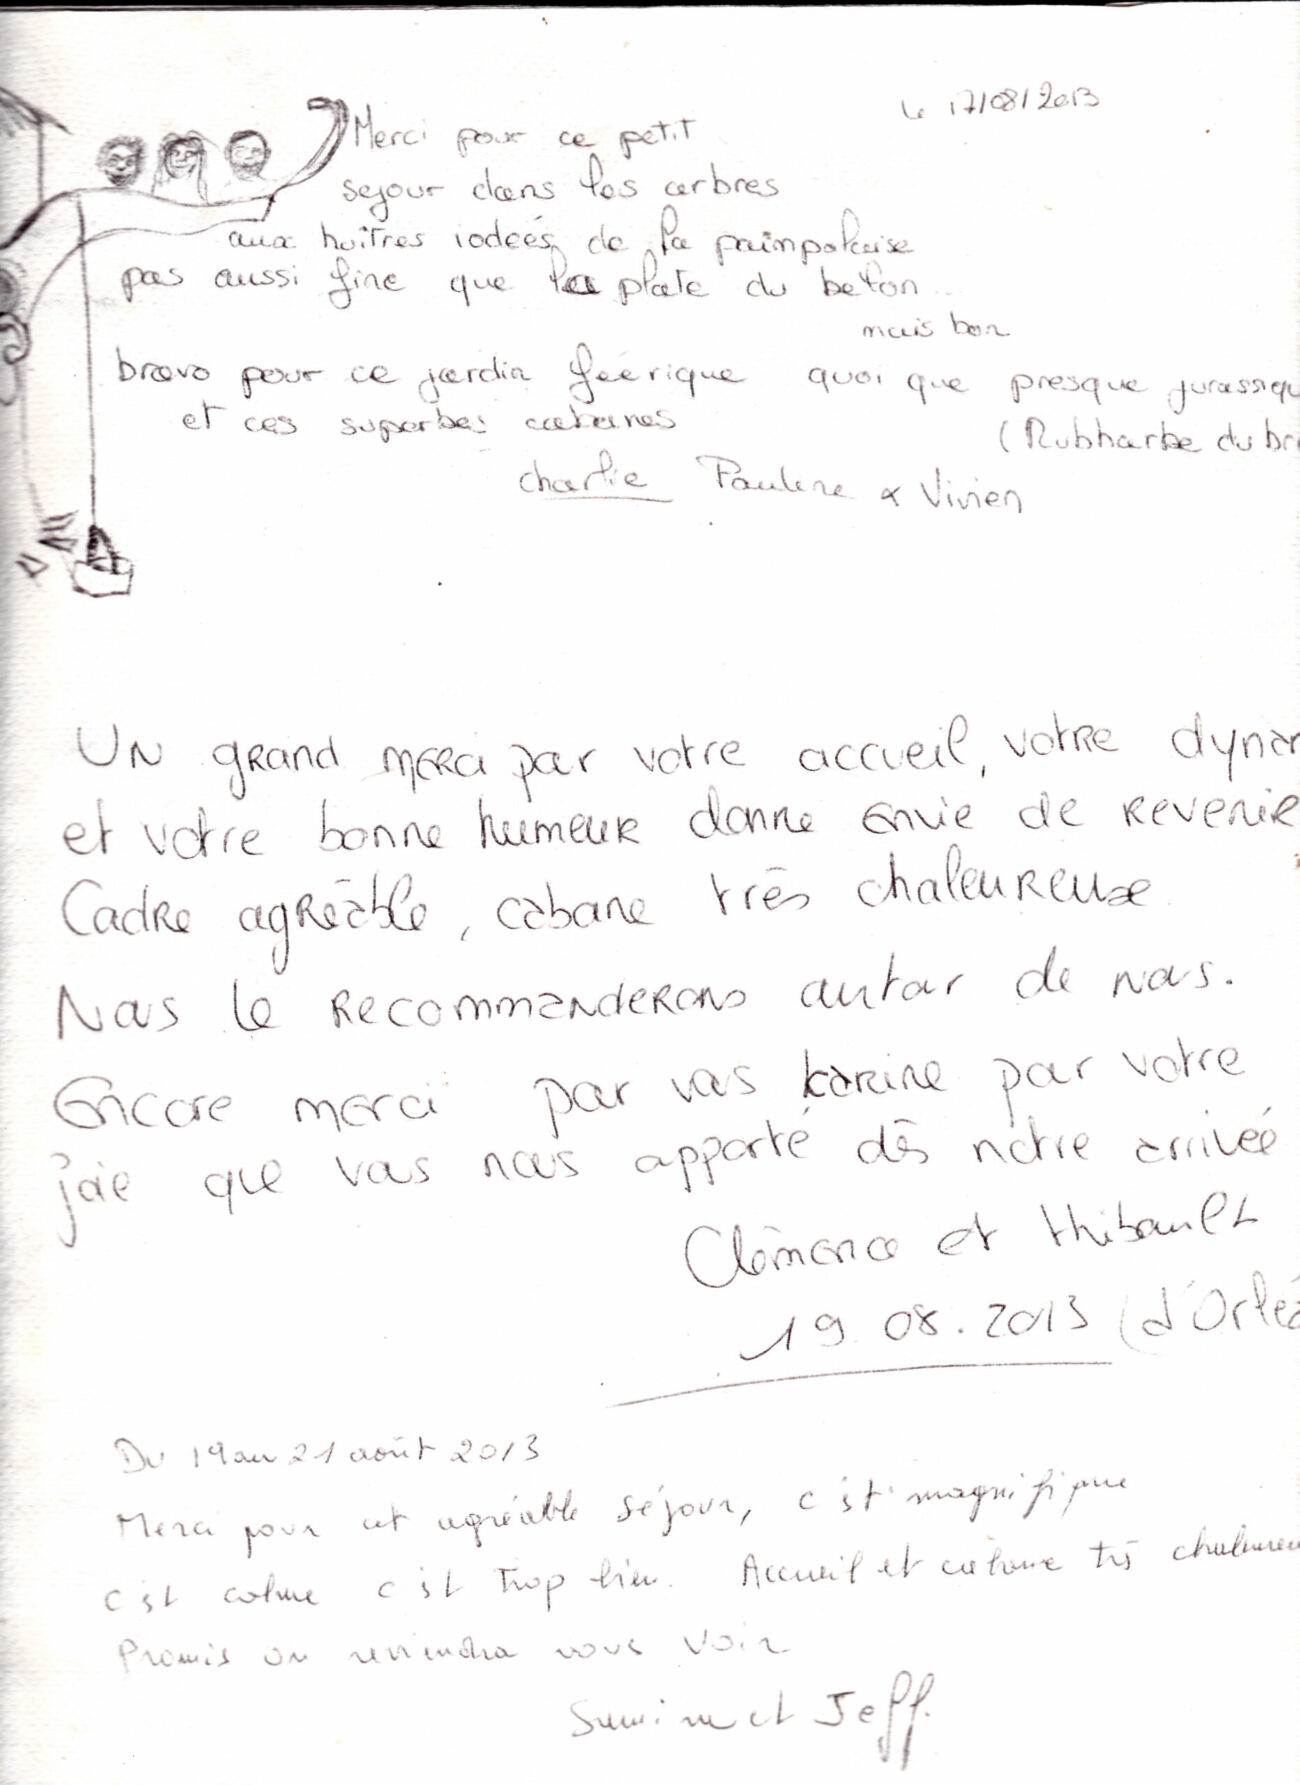 Le 17/08/2013
Merci pour ce petit
sejour dans les arbres
aux huîtres iodées de la paimpolaise
pas aussi fine que la plate du beton
mais bon
bravo pour ce jardin féérique quoi que presque jurassiqu
et ces superbes cabanes
(Rubharbe du br
charlie Pauline & Vivien
UN grand merci par votre accueil, votre dynam
et votre bonne humeur donne envie de revenir
Cadre agréable, cabane très chaleureuse
Nous le recommanderons autour de nous.
Encore merci par vous karine par votre
joie que vous nous apporté dès notre arrivée
Clémence et thibault
19.08.2013 (d'Orléa
Du 19 au 21 août 2013
Merci pour cet agréable séjour, c'est magnifique
c'est calme c'est trop bien. Accueil et cabane très chaleureu
Promis on reviendra vous voir
et Jeff.